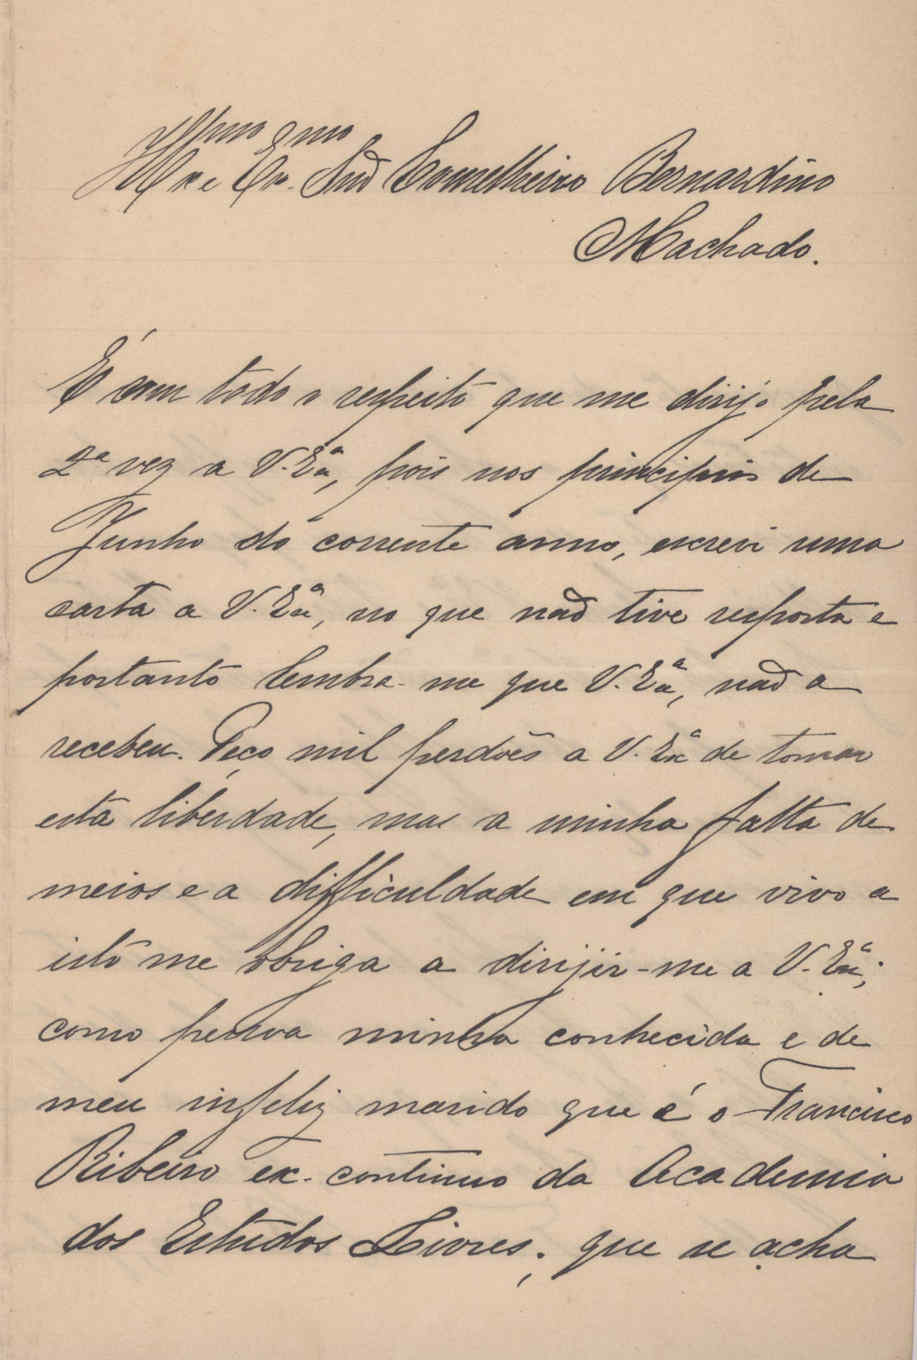 Illmo e Exmo Snr Conselheiro Bernardino
Machado.
É com todo o respeito que me dirijo pela
2ª vez a V. Exª, pois nos principios de
Junho do corrente anno, escrevi uma
carta a V. Exª, no que não tive resposta e
portanto lembra-me que V. Exª, não a
recebeu. Peço mil perdões a V. Exª de tomar
esta liberdade, mas a minha falta de
meios e a difficuldade em que vivo a
isto me obriga a dirijir-me a V. Exª;
como pessoa minha conhecida e de
meu infeliz marido que é o Francisco
Ribeiro ex-continuo da Academia
dos Estudos Livres; que se acha